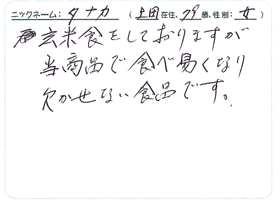 ニックネーム: タナカ (上田在住、79歳、性別: 女)
玄米食をしておりますが
当商品で食べ易くなり
欠かせない食品です。